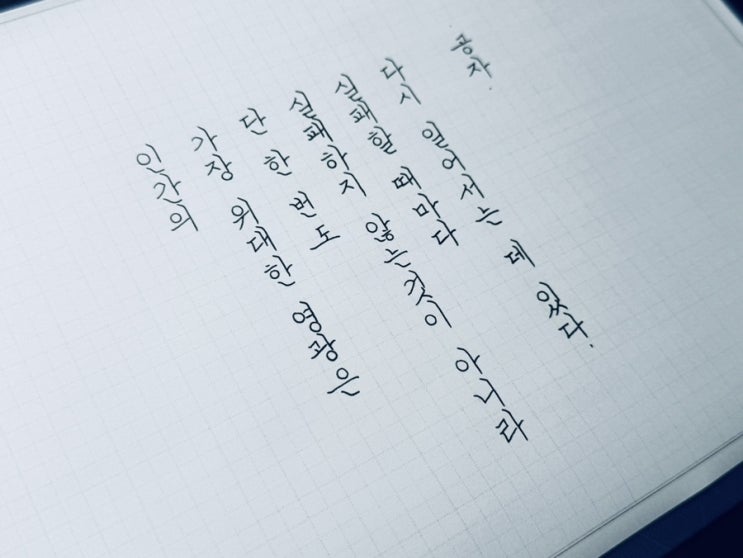 인간의
가장 위대한 영광은
단 한 번도
실패하지 않는것이 아니라
실패할 때마다
다시 일어서는 데 있다.
공자.